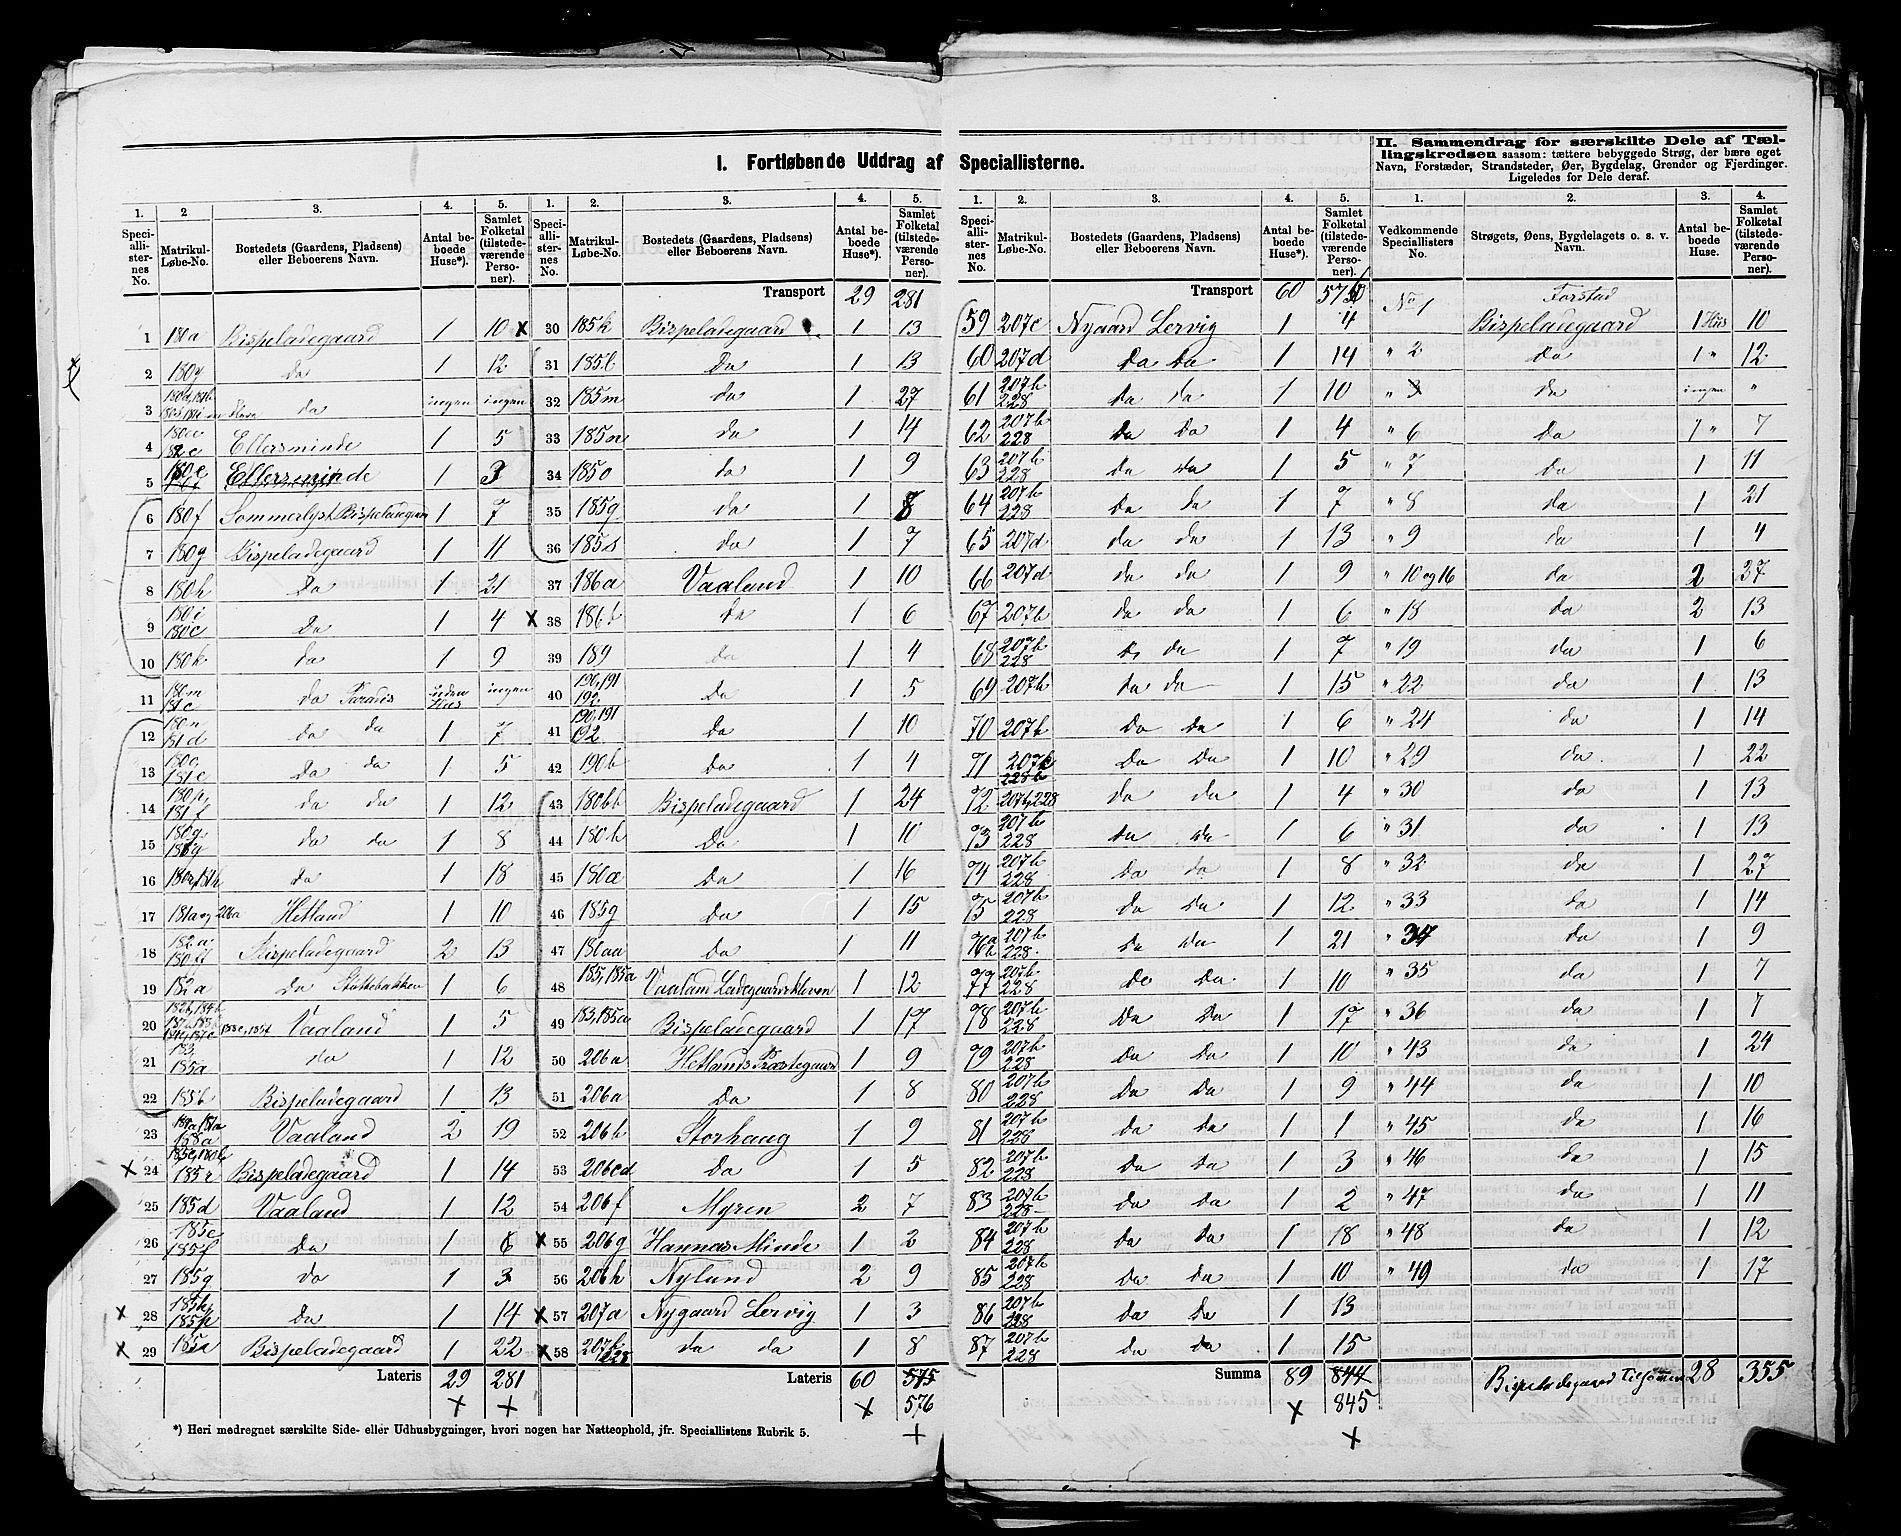 I. Fortløbende Uddrag af Speciallisterne.
II. Sammendrag for særskilte Dele af Tæl-
lingskredsen saasom: tættere bebyggede Strøg, der bære eget
Navn, Forstæder, Strandsteder, Øer, Bygdelag, Grender og Fjerdinger.
Ligeledes for Dele deraf.
1. 2 3. 4. 5.
Speciallisternes No. Matrikul-Løbe-No. Bostedets (Gaardens, Pladsens) eller Beboerens Navn. Antal beboede Huse*). Samlet Folketal (tilstedeværende Personer).
1 180a Bispeladegaard 1 10
2 180 da 1 12
3 da ingen ingen
4 Ellersminde 1 5
5 180e Ellersminde 1 3
6 180f Sommerlyst Bispeladegaard 1 7
7 180g Bispeladegaard 1 11
8 180h Da 1 21
9 180i 180c Da 1 4
10 180k da 1 9
11 180m 181c da Paradis uden Hus ingen
12 180n 181d da da 1 7
13 180o 181e Da da 1 5
14 180p 181f da da 1 12
15 180q 181g da da 1 8
16 181h da 1 18
17 181a og 206a Hetland 1 10
18 182a Bispeladegaard 2 13
19 182a da Støttebakken 1 6
20 Vaaland 1 5
21 183, 185a da 1 12
22 185b Bispeladegaard 1 13
23 188a Vaaland 2 19
24 185r Bispeladegaard 1 14
25 185d Vaaland 1 12
26 185e 185f Da 1 6
27 185g da 1 3
28 185h 185p da 1 14
29 185i Bispeladegaard 1 22
Lateris 29 281
*) Heri medregnet særskilte Side- eller Udhusbygninger, hvori nogen har Natteophold, jfr. Speciallistens Rubrik 5.
1. 2. 3. 4. 5.
Speciallisternes No. Matrikul-Løbe-No. Bostedets (Gaardens, Pladsens) eller Beboerens Navn. Antal beboede Huse*). Samlet Folketal (tilstedeværende Personer).
Transport 29 281
30 185k Bispeladegaard 1 13
31 185l Da 1 13
32 185m da 1 27
33 185n da 1 14
34 185o da 1 9
35 185q da 1 8
36 185s da 1 7
37 186a Vaaland 1 10
38 186b da 1 6
39 189 da 1 4
40 190, 191 192 Da 1 5
41 190, 191 192 Da 1 10
42 190b Da 1 4
43 180bb Bispeladegaard 1 24
44 180h Da 1 10
45 180æ Da 1 16
46 185g Da 1 15
47 180aa Da 1 11
48 185, 185a Vaaland Ladegaardskleven 1 12
49 183, 185a Bispeladegaard 1 17
50 206a Hetlands Præstegaard 1 9
51 206a Da 1 8
52 206b Storhaug 1 9
53 206cd Da 1 5
54 206f Myren 2 7
55 206g Hannas Minde 1 2
56 206h Nylund 2 9
57 207a Nygaard Lervig 1 3
58 207b 228 da da 1 8
Lateris 60 575
576
1. 2. 3. 4. 5.
Speciallisternes No. Matrikul-Løbe-No. Bostedets (Gaardens, Pladsens) eller Beboerens Navn. Antal beboede Huse*). Samlet Folketal (tilstedeværende Personer).
Transport 60
59 207c Nygaard Lervig 1 4
60 207d Da Da 1 14
61 207b 228 da da 1 10
62 207b 228 Da Da 1 4
63 207b 228 da da 1 5
64 207b 228 da da 1 7
65 207d da da 1 13
66 207d da da 1 9
67 207b da da 1 6
68 207b 228 da da 1 7
69 207b da da 1 15
70 207b da da 1 6
71 207b 228b Da Da 1 10
72 207b, 228 da da 1 4
73 207b 228 da da 1 6
74 207b 228 da da 1 8
75 207b 228 da da 1 12
76 a b 207b 228 da da 1 21
77 207b 228 da da 1 10
78 207b 228 Da Da 1 17
79 207b 228 Da Da 1 10
80 207b 228 Da Da 1 9
81 207b 228 Da Da 1 1
82 207b 228 Da Da 1 3
83 207b 228 Da Da 1 2
84 207b 228 Da Da 1 18
85 207b 228 Da Da 1 10
86 207b 228 Da Da 1 13
87 207b 228 da da 1 15
Summa 89 844
845
1. 2. 3. 4.
Vedkommende Speciallisters No. Strøgets, Øens, Bygdelagets o. s. v. Navn. Antal beboede Huse. Samlet Folketal (tilstedeværende Personer).
Forstad
No 1 Bispeladegaard 1 Hus 10
" 2 da 1 " 12
" 3 da ingen "
" 6 da 1 " 7
" 7 da 1 11
" 8 da 1 21
" 9 da 1 4
" 10 og 16 da 2 27
" 18 da 2 13
" 19 da 1 6
" 22 da 1 13
" 24 da 1 14
" 29 da 1 22
" 30 da 1 13
" 31 da 1 13
" 32 da 1 27
" 33 da 1 14
" 34 da 1 9
" 35 da 1 7
" 36 da 1 7
" 43 da 1 24
" 44 da 1 10
" 45 da 1 16
" 46 da 1 15
" 47 da 1 11
" 48 da 1 12
" 49 da 1 17
Bispeladegaard Tilsammen 28 355